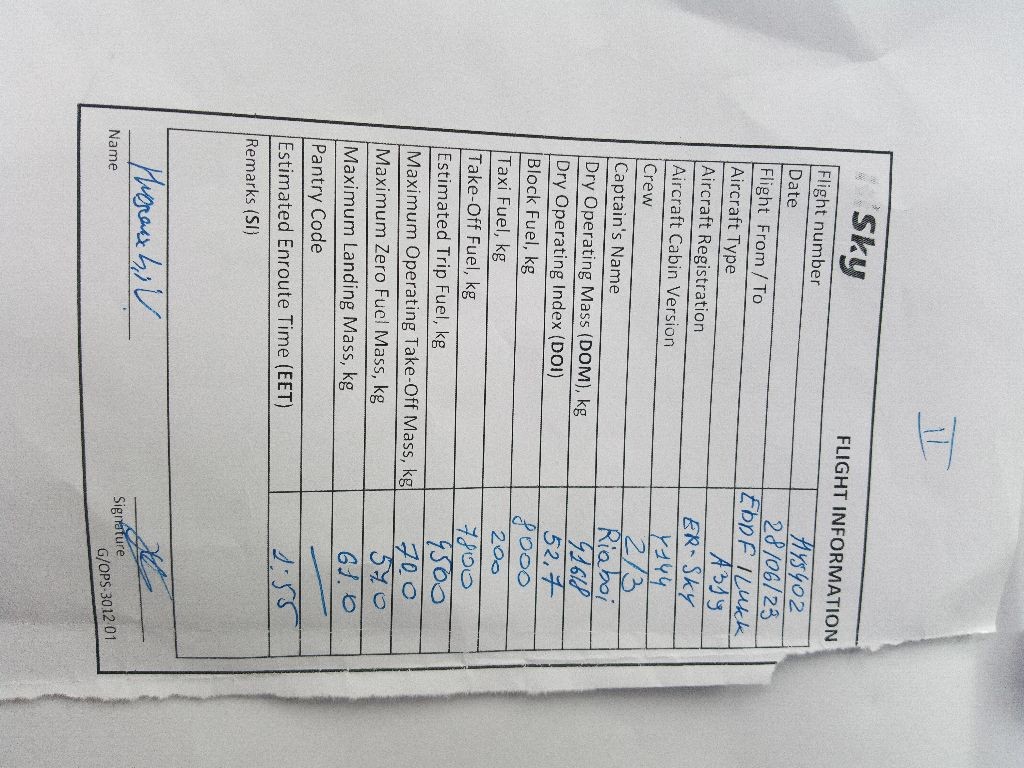 II
Sky
FLIGHT INFORMATION
Flight number HYS402
Date 28/06/23
Flight From / To EDDF / LUKK
Aircraft Type A319
Aircraft Registration ER-SKY
Aircraft Cabin Version Y144
Crew 2/3
Captain's Name Riaboi
Dry Operating Mass (DOM), kg
Dry Operating Index (DOI) 52.7
Block Fuel, kg 8000
Taxi Fuel, kg 200
Take-Off Fuel, kg 7800
Estimated Trip Fuel, kg 4500
Maximum Operating Take-Off Mass, kg 70.0
Maximum Zero Fuel Mass, kg 57.0
Maximum Landing Mass, kg 61.0
Pantry Code —
Estimated Enroute Time (EET) 1.55
Remarks (SI)
Name
Signature
G/OPS-3012 01